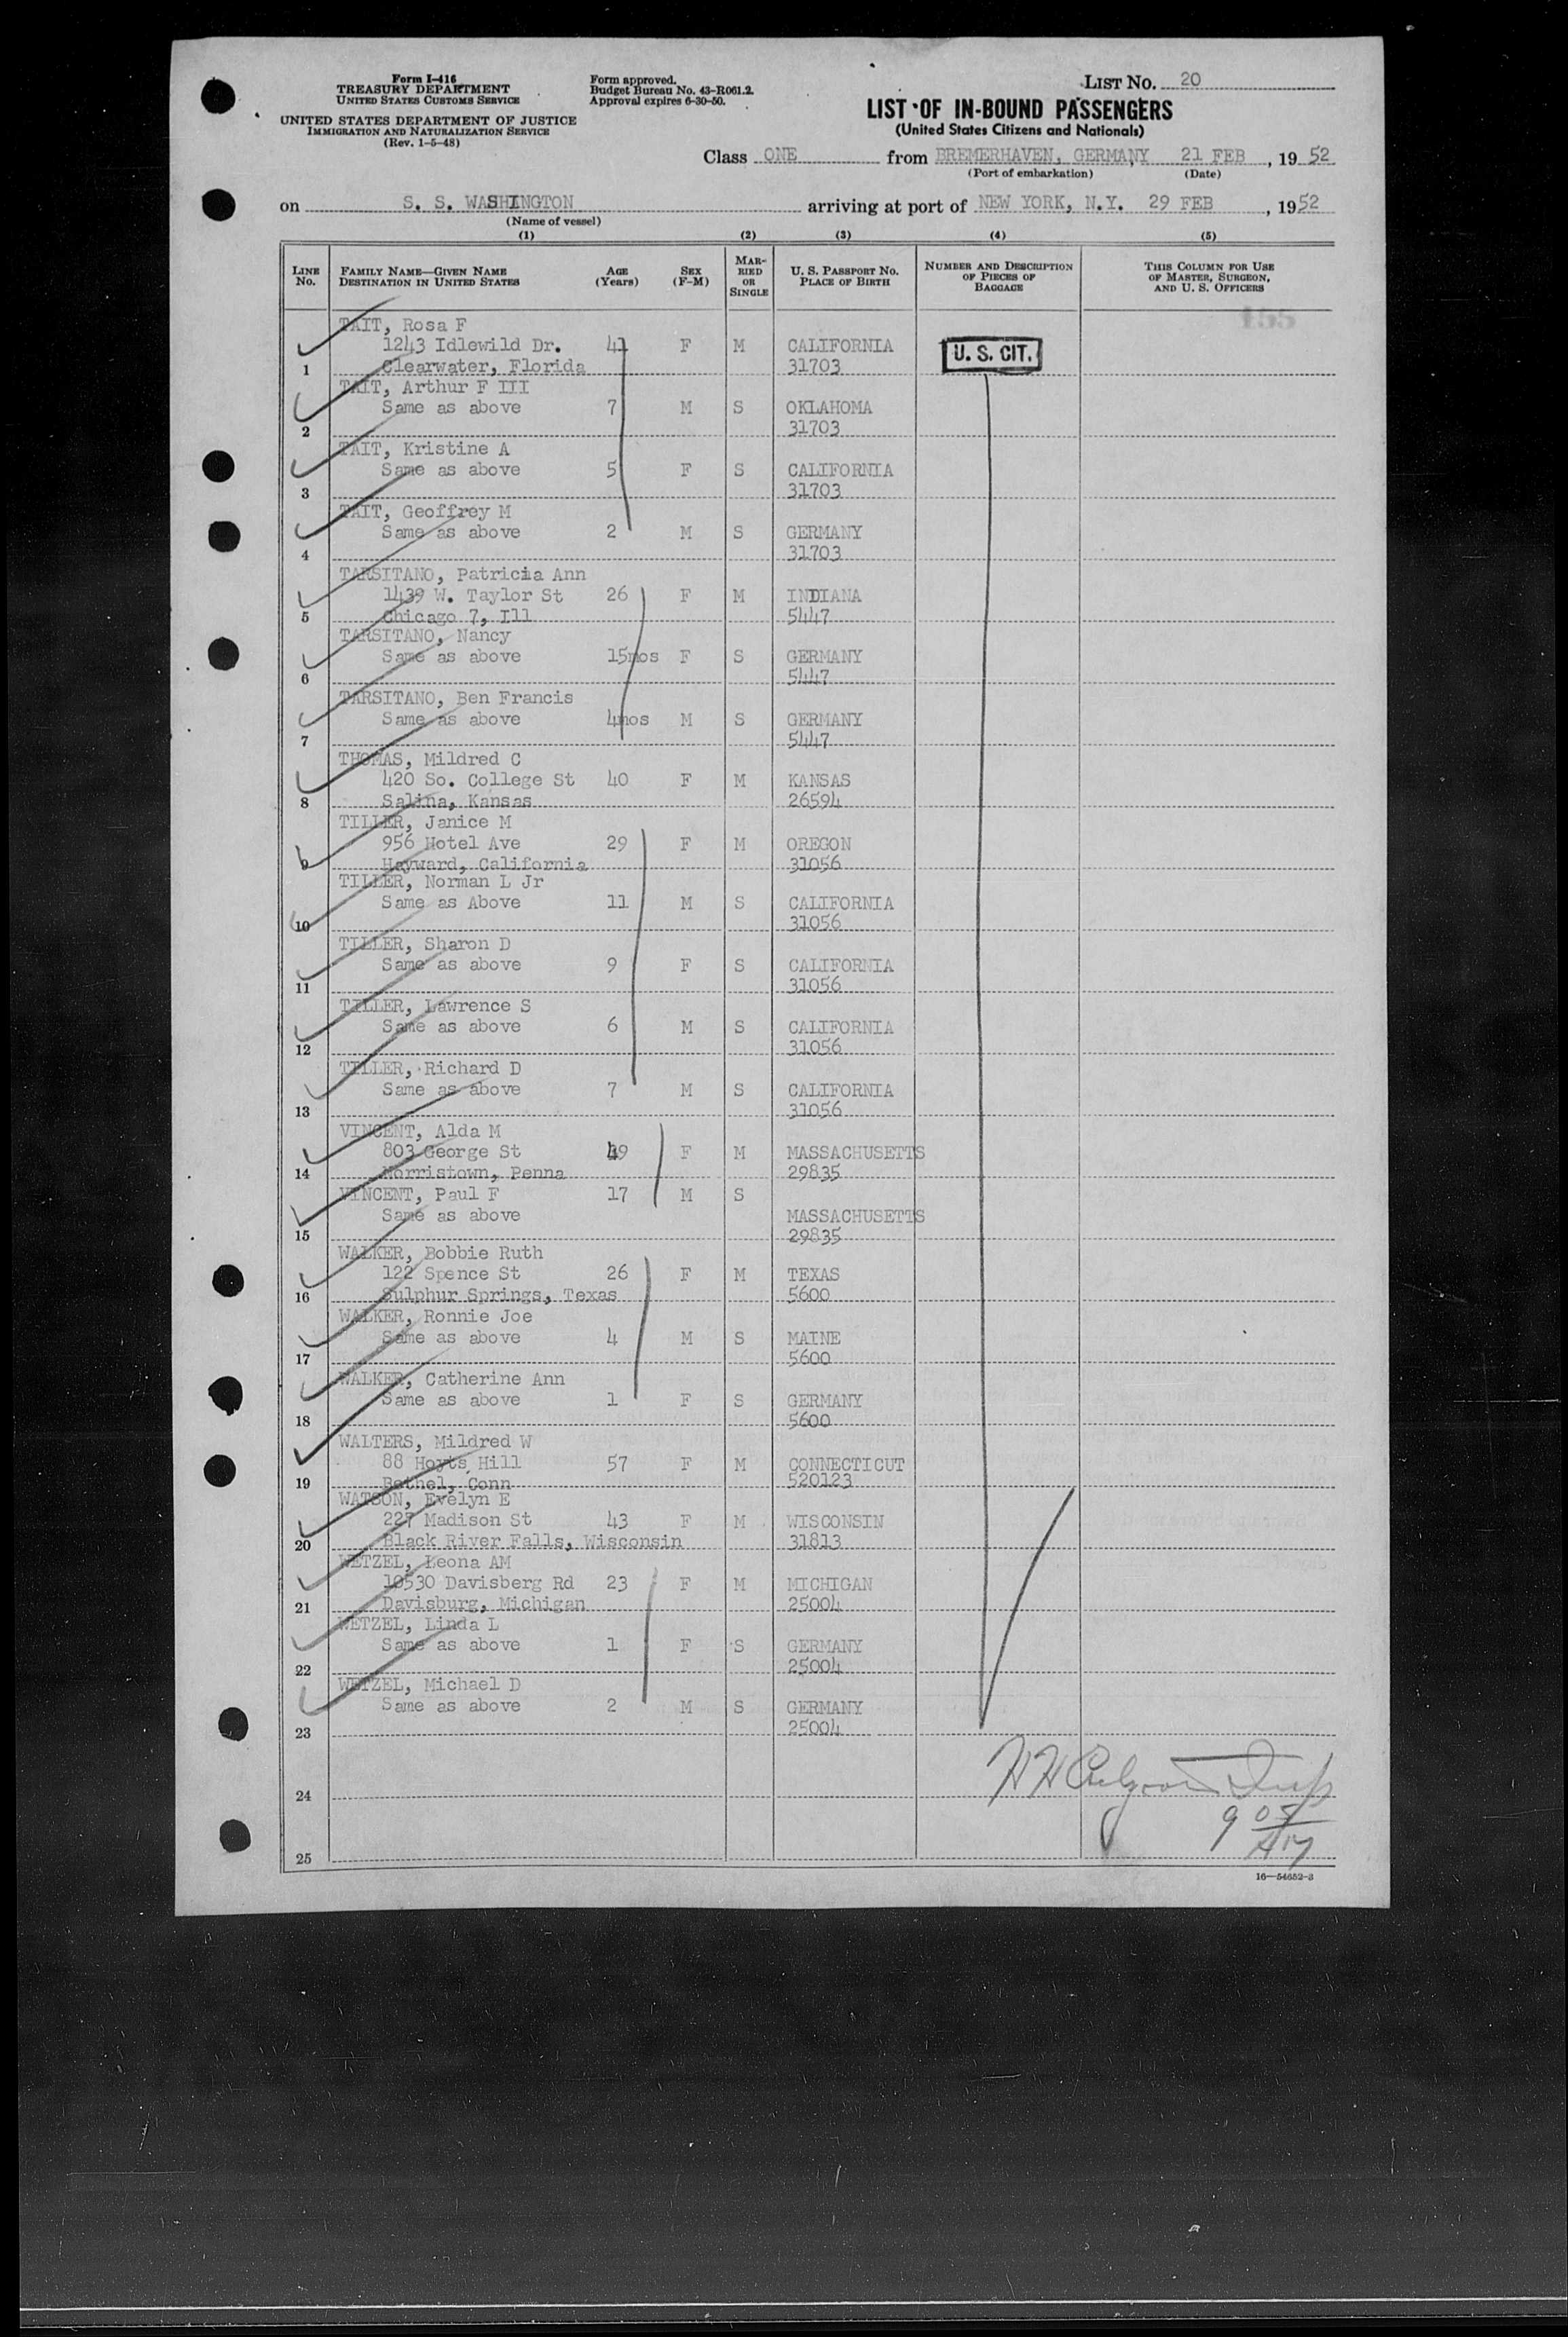 Form I-416
TREASURY DEPARTMENT
UNITED STATES CUSTOMS SERVICE
UNITED STATES DEPARTMENT OF JUSTICE
IMMIGRATION AND NATURALIZATION SERVICE
(Rev. 1-5-48)
Form approved.
Budget Bureau No. 43-R061.2.
Approval expires 6-30-50.
LIST No. 20
LIST OF IN-BOUND PASSENGERS
(United States Citizens and Nationals)
Class ONE from BREMERHAVEN, GERMANY 21 FEB, 1952
(Port of embarkation) (Date)
on S. S. WASHINGTON arriving at port of NEW YORK, N.Y. 29 FEB, 1952
(Name of vessel)
(1) (2) (3) (4) (5)
LINE No. FAMILY NAME—GIVEN NAME DESTINATION IN UNITED STATES AGE (Years) SEX (F-M) MARRIED OR SINGLE U. S. PASSPORT No. PLACE OF BIRTH NUMBER AND DESCRIPTION OF PIECES OF BAGGAGE THIS COLUMN FOR USE OF MASTER, SURGEON, AND U. S. OFFICERS
155
TAIT, Rosa F
1243 Idlewild Dr. 41 F M CALIFORNIA U. S. CIT.
1 Clearwater, Florida 31703
TAIT, Arthur F III
Same as above 7 M S OKLAHOMA
2 31703
TAIT, Kristine A
Same as above 5 F S CALIFORNIA
3 31703
TAIT, Geoffrey M
Same as above 2 M S GERMANY
4 31703
TARSITANO, Patricia Ann
1439 W. Taylor St 26 F M INDIANA
5 Chicago 7, Ill 5447
TARSITANO, Nancy
Same as above 15mos F S GERMANY
6 5447
TARSITANO, Ben Francis
Same as above 4mos M S GERMANY
7 5447
THOMAS, Mildred C
420 So. College St 40 F M KANSAS
8 Salina, Kansas 26594
TILLER, Janice M
956 Hotel Ave 29 F M OREGON
9 Hayward, California 31056
TILLER, Norman L Jr
Same as Above 11 M S CALIFORNIA
10 31056
TILLER, Sharon D
Same as above 9 F S CALIFORNIA
11 31056
TILLER, Lawrence S
Same as above 6 M S CALIFORNIA
12 31056
TILLER, Richard D
Same as above 7 M S CALIFORNIA
13 31056
VINCENT, Alda M
803 George St 49 F M MASSACHUSETTS
14 Norristown, Penna 29835
VINCENT, Paul F 17 M S
Same as above MASSACHUSETTS
15 29835
WALKER, Bobbie Ruth
122 Spence St 26 F M TEXAS
16 Sulphur Springs, Texas 5600
WALKER, Ronnie Joe
Same as above 4 M S MAINE
17 5600
WALKER, Catherine Ann
Same as above 1 F S GERMANY
18 5600
WALTERS, Mildred W
88 Hoyts Hill 57 F M CONNECTICUT
19 Bethel, Conn 520123
WATSON, Evelyn E
227 Madison St 43 F M WISCONSIN
20 Black River Falls, Wisconsin 31813
WETZEL, Leona AM
10530 Davisberg Rd 23 F M MICHIGAN
21 Davisburg, Michigan 25004
WETZEL, Linda L
Same as above 1 F S GERMANY
22 25004
WETZEL, Michael D
Same as above 2 M S GERMANY
23 25004
24
25
16—54652-3